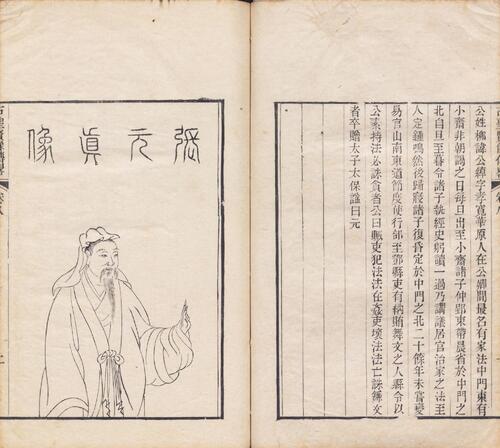 公姓柳諱公綽字孝寬華原人在公卿間最名有家法中門東有
小齋非朝謁之日每旦出至小齋諸子仲郢束帶晨省於中門之
北自旦至暮令諸子執經史躬讀一過乃講議居官治家之法至
人定鍾鳴然後歸寢諸子復昏定於中門之北二十餘年未嘗變
易官山南東道節度使行部至鄧縣吏有納賄舞文之人縣令以
公素持法必誅貪者公曰贓吏犯法法在姦吏壞法法亡誅舞文
者卒贈太子太保諡曰元
張元眞像